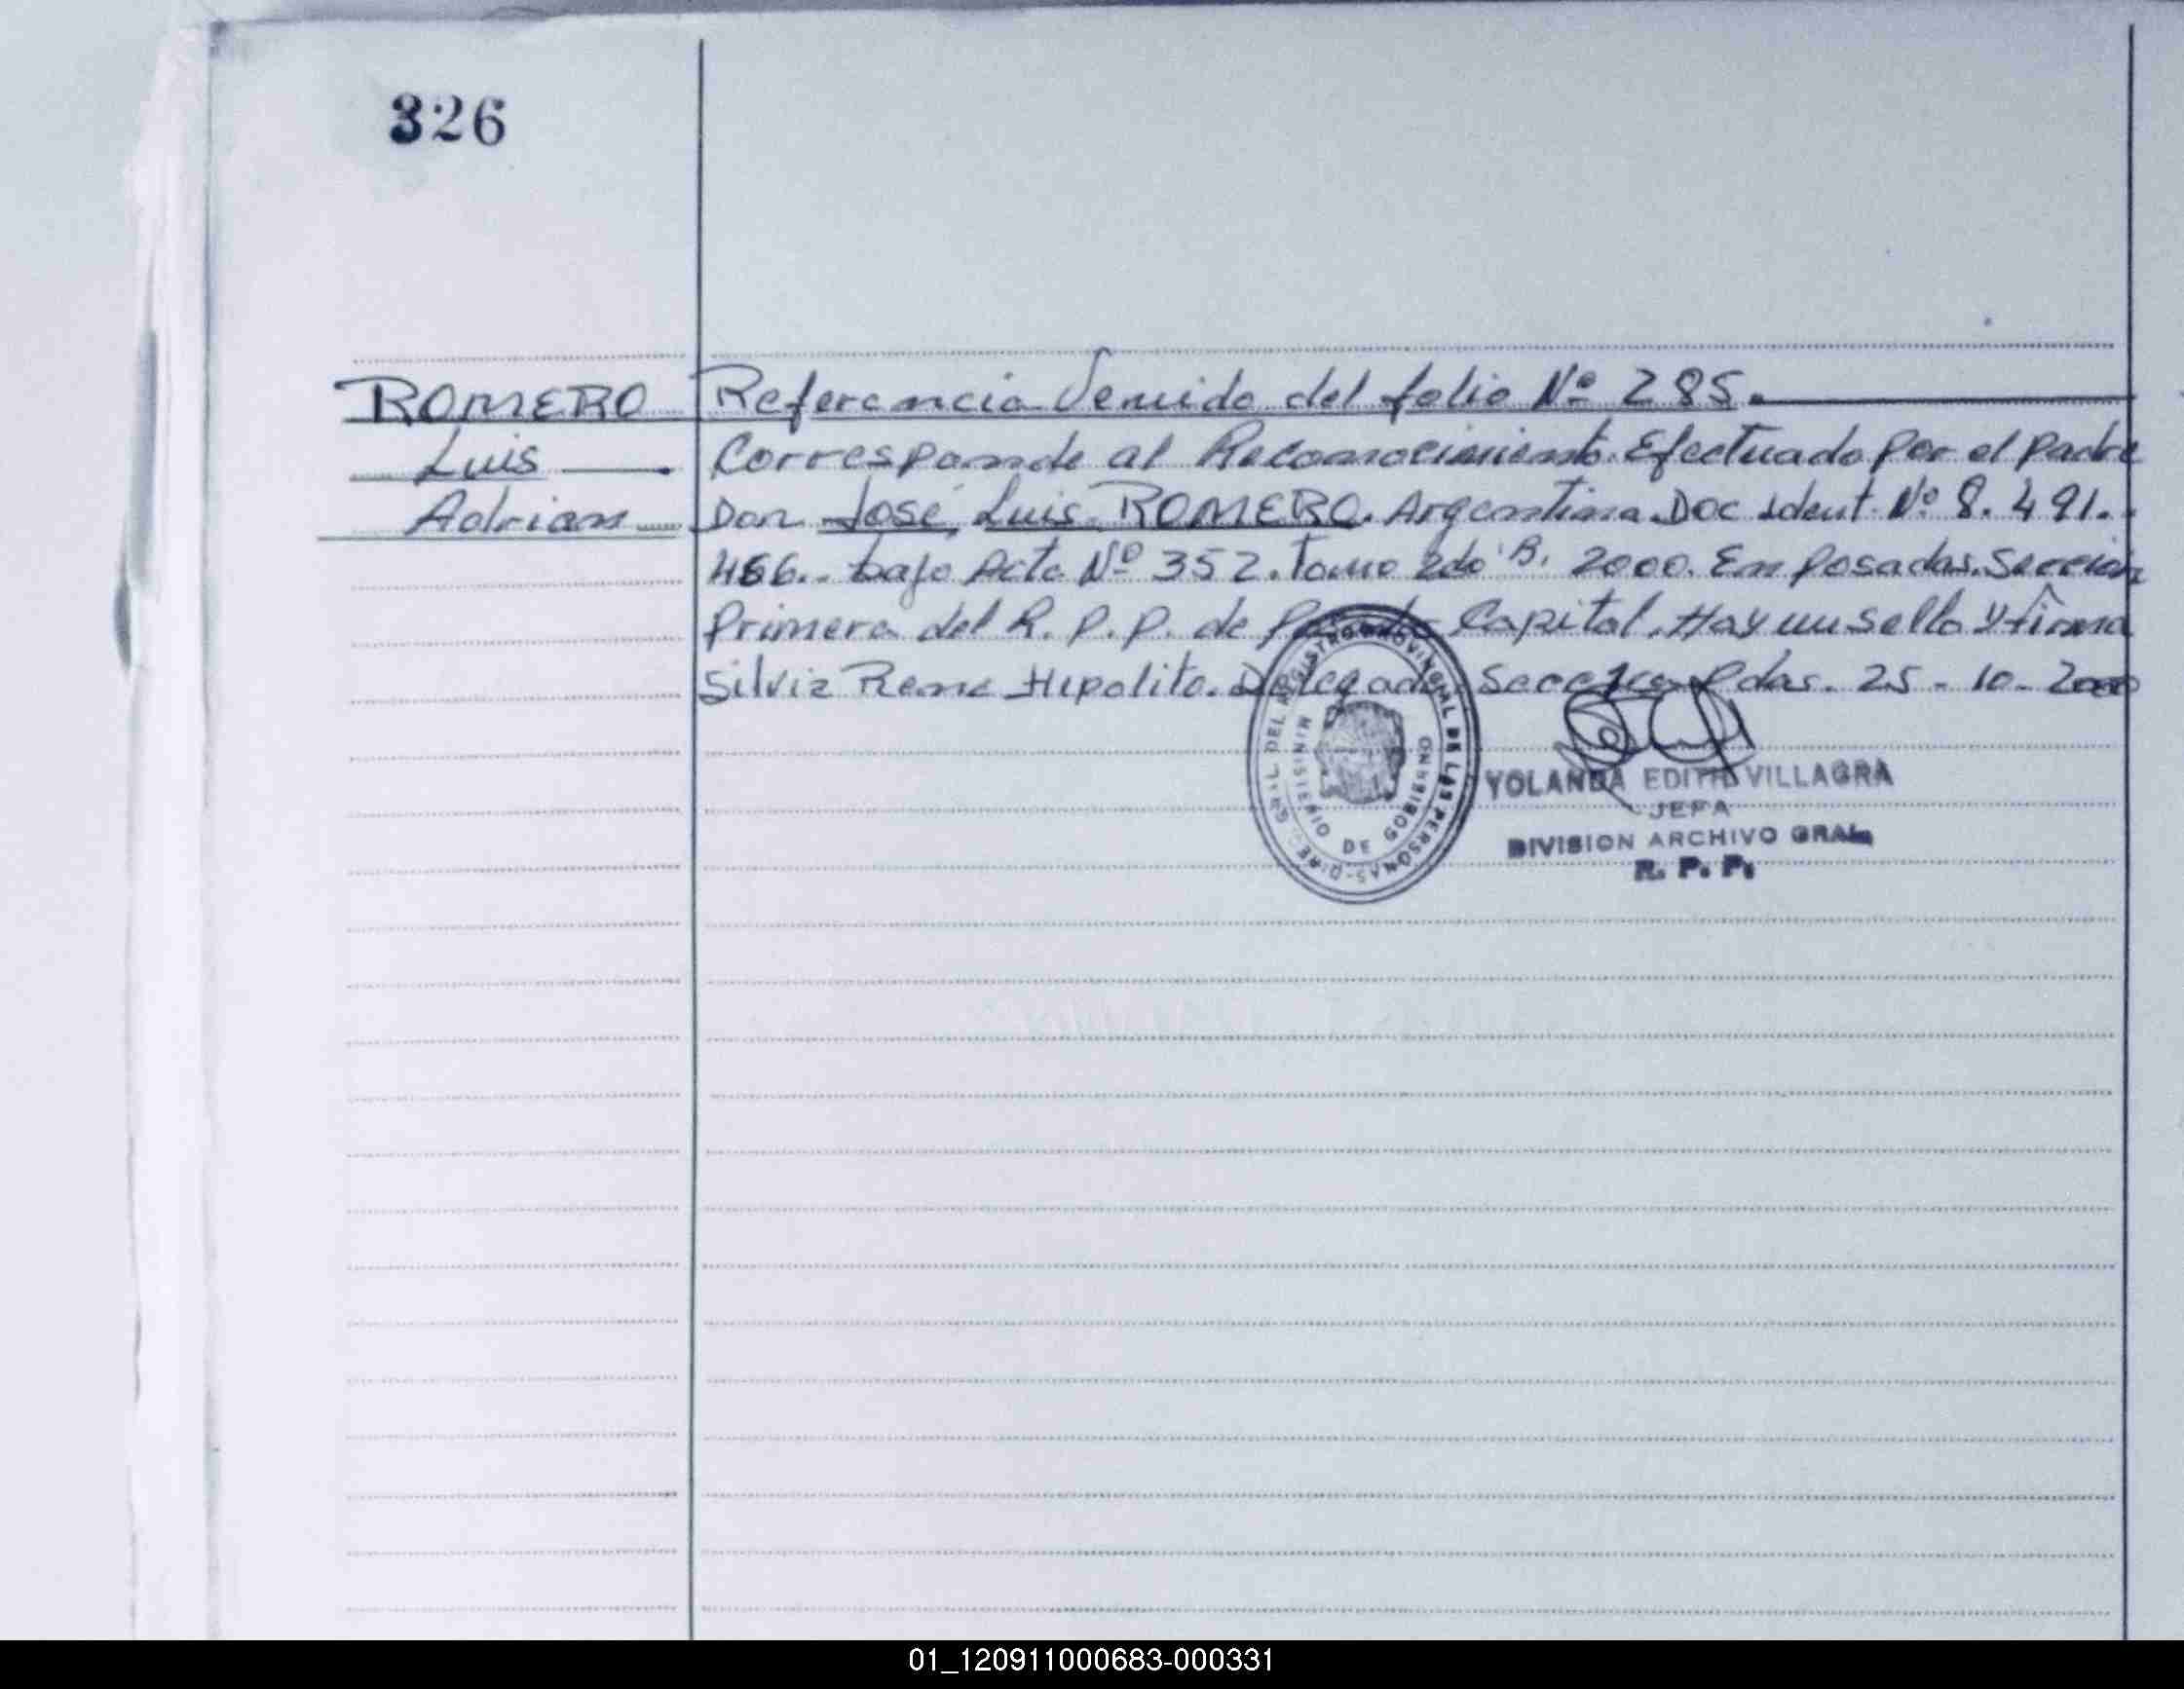 326
ROMERO
Luis
Adrian
Referencia Venida del folio Nº 285.
Corresponde al Reconocimiento Efectuado por el padre
Don José Luis ROMERO. Argentina. Doc Ident. Nº 8.491.
466.. bajo Acta Nº 352. Tomo 2do B. 2000. En Posadas. Sección
Primera del R. P. P. de Posadas Capital. Hay un Sello y firma
Silvia Rene Hipolito. Delegada Pdas. 25-10-2000
REGISTRO PROVINCIAL DE LAS PERSONAS
MINISTERIO DE GOBIERNO
YOLANDA EDITH VILLAGRA
JEFA
DIVISION ARCHIVO GRAL.
R. P. P.
01_120911000683-000331